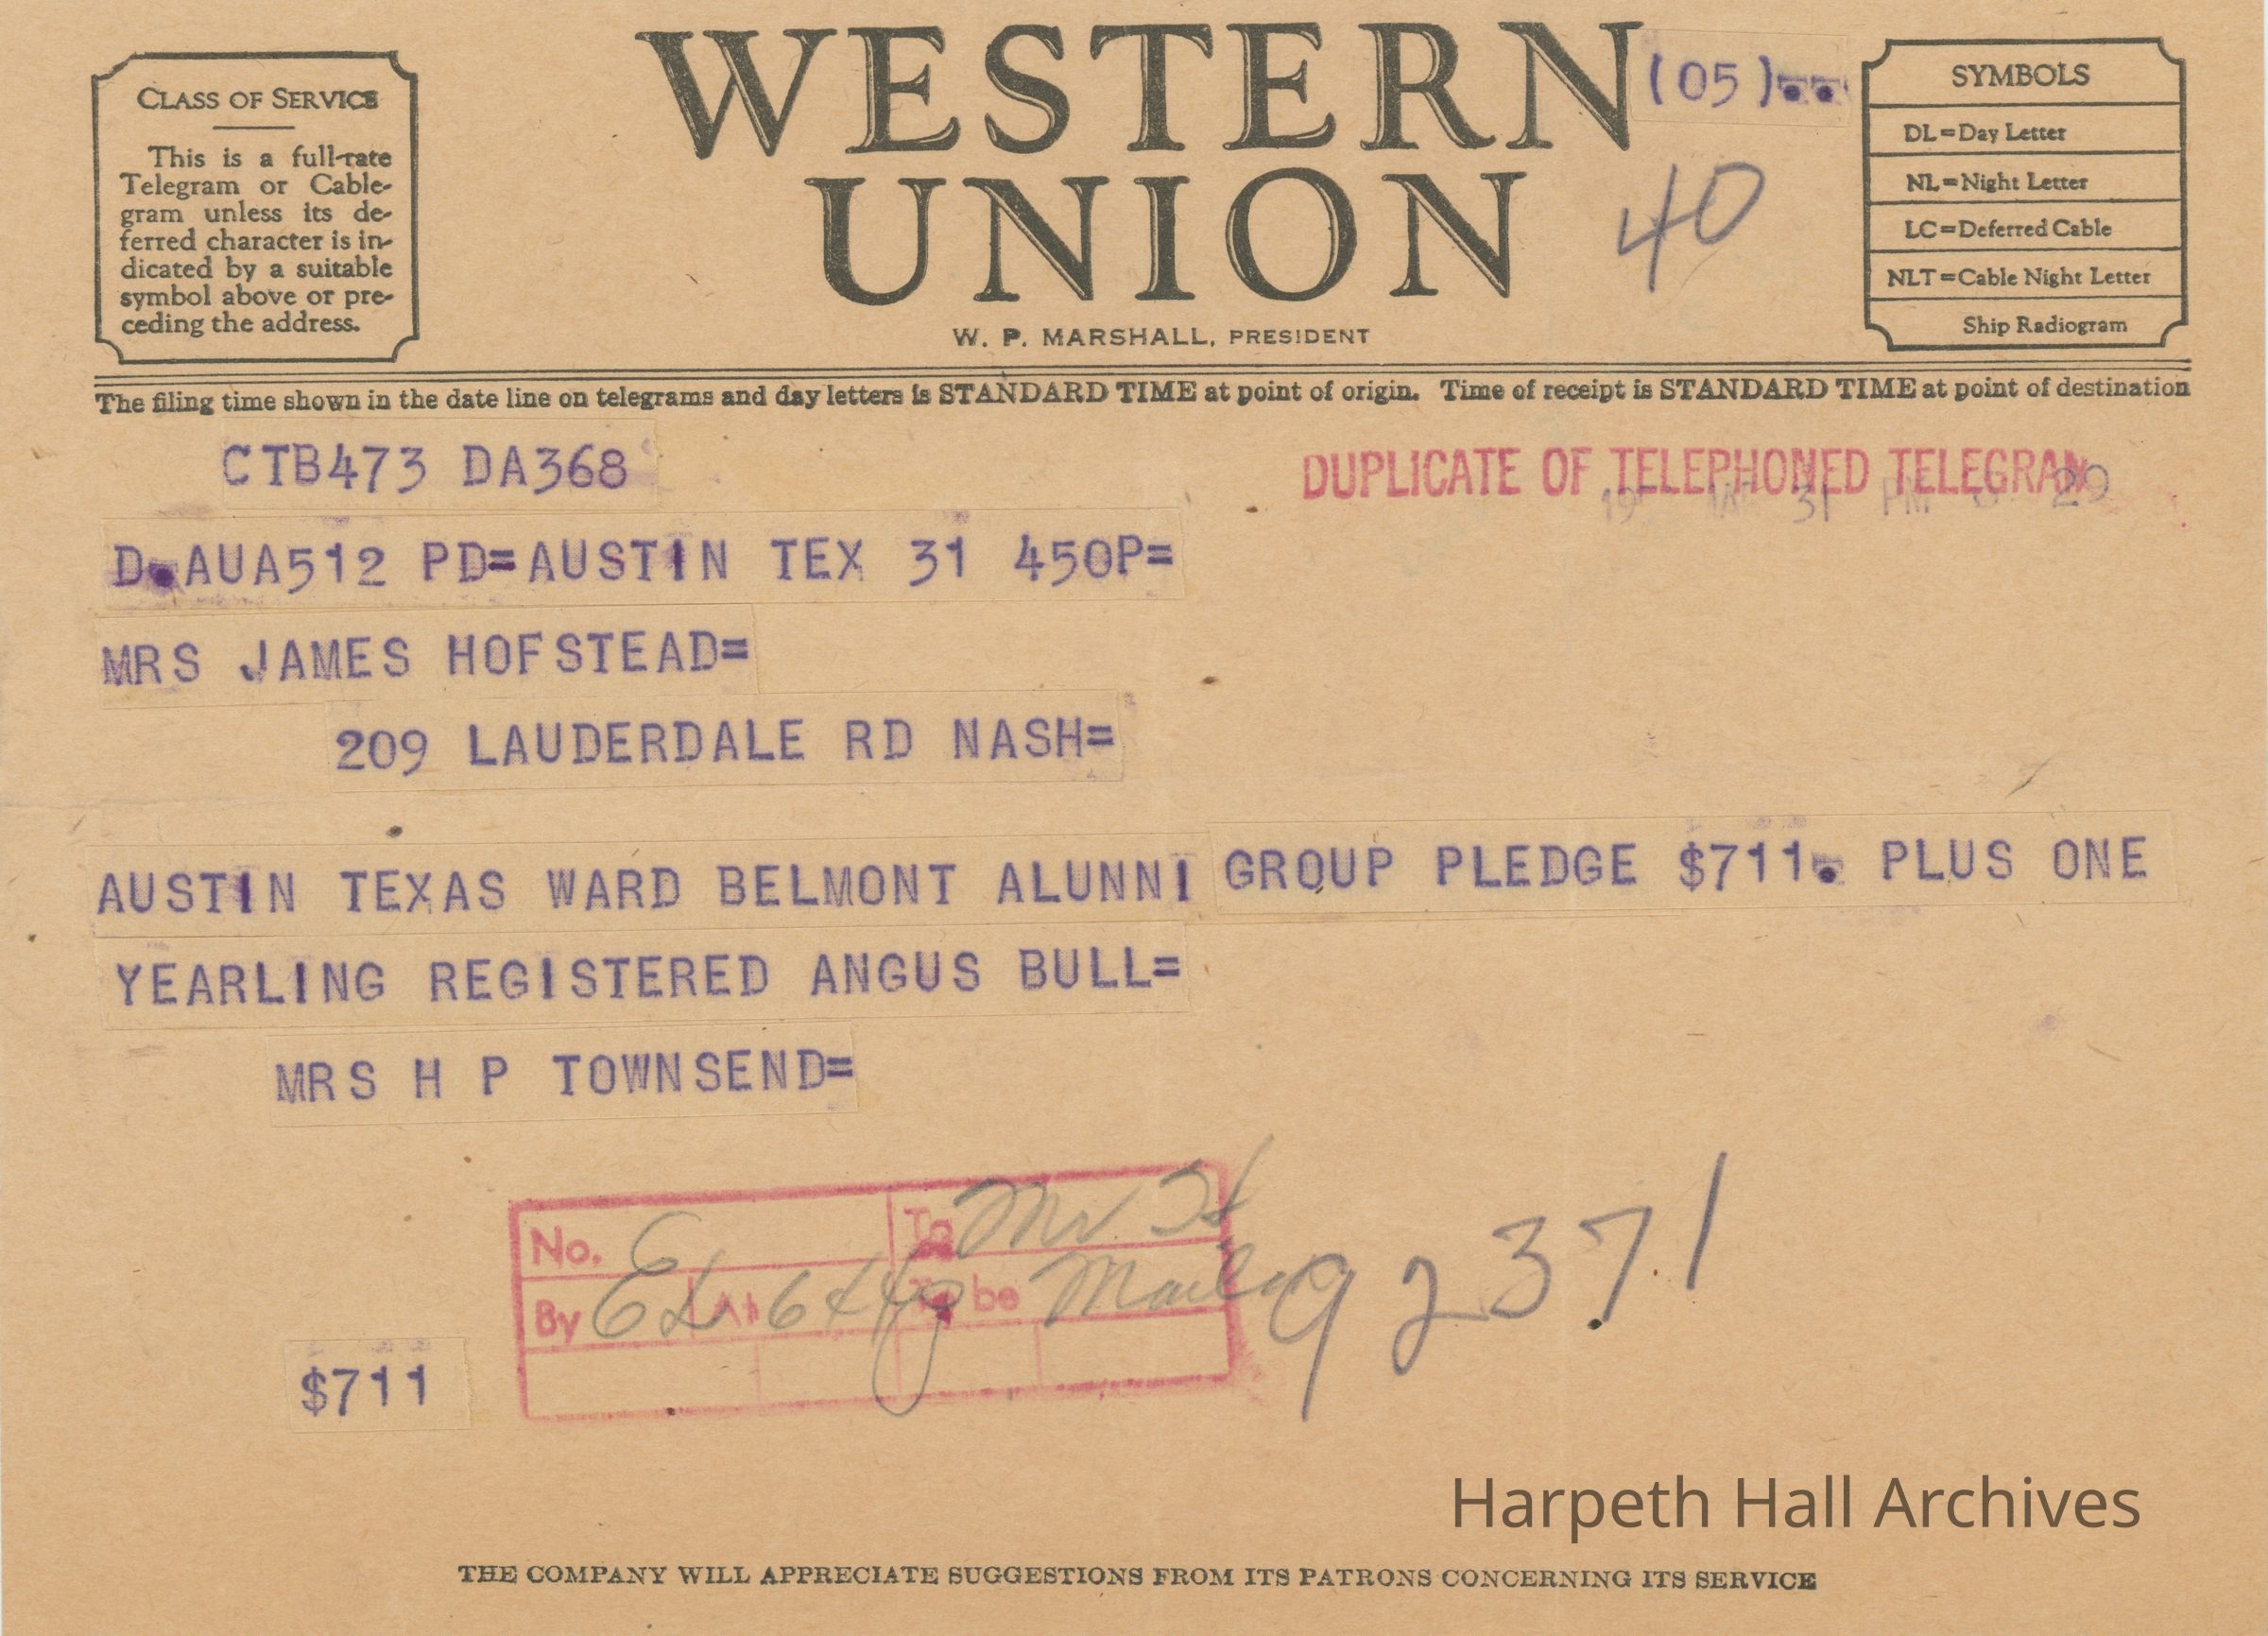 CLASS OF SERVICE
This is a full-rate
Telegram or Cable-
gram unless its de-
ferred character is in-
dicated by a suitable
symbol above or pre-
ceding the address.
WESTERN
UNION
W. P. MARSHALL, PRESIDENT
(05)
40
SYMBOLS
DL=Day Letter
NL=Night Letter
LC=Deferred Cable
NLT=Cable Night Letter
Ship Radiogram
The filing time shown in the date line on telegrams and day letters is STANDARD TIME at point of origin. Time of receipt is STANDARD TIME at point of destination
CTB473 DA368
DUPLICATE OF TELEPHONED TELEGRAM
31 PM 29
D.AUA512 PD=AUSTIN TEX 31 450P=
MRS JAMES HOFSTEAD=
209 LAUDERDALE RD NASH=
AUSTIN TEXAS WARD BELMONT ALUNNI GROUP PLEDGE $711. PLUS ONE
YEARLING REGISTERED ANGUS BULL=
MRS H P TOWNSEND=
No. To Mr. H
By At To be
92371
$711
Harpeth Hall Archives
THE COMPANY WILL APPRECIATE SUGGESTIONS FROM ITS PATRONS CONCERNING ITS SERVICE